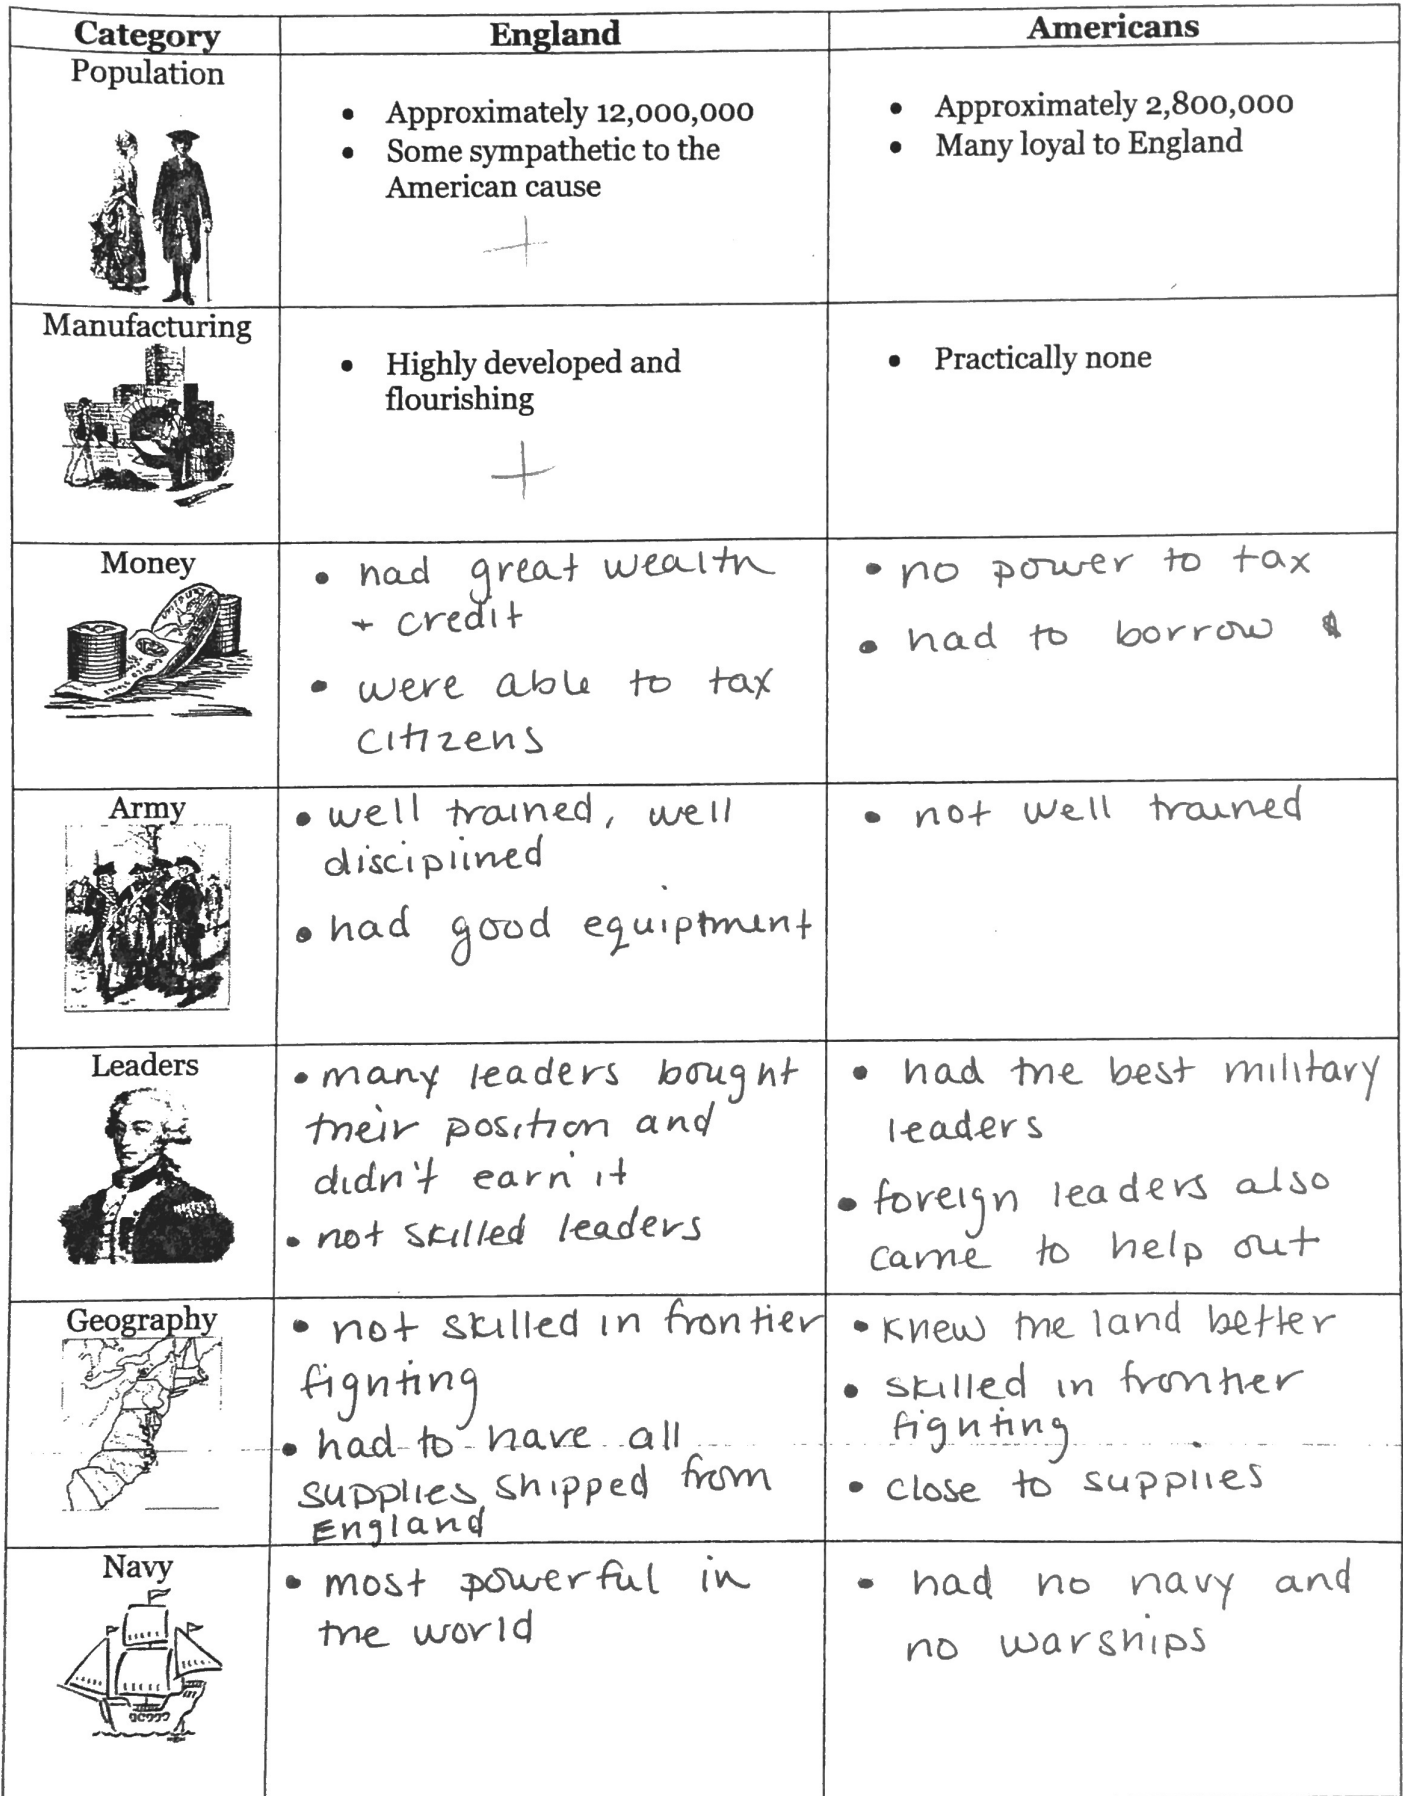 Category England Americans
Population
• Approximately 12,000,000
• Some sympathetic to the
American cause
+
• Approximately 2,800,000
• Many loyal to England
Manufacturing
• Highly developed and
flourishing
+
• Practically none
Money
• had great wealth
+ credit
• were able to tax
citizens
• no power to tax
• had to borrow $
Army
• well trained, well
disciplined
• had good equiptment
• not well trained
Leaders
• many leaders bought
their position and
didn't earn it
• not skilled leaders
• had the best military
leaders
• foreign leaders also
came to help out
Geography
• not skilled in frontier
fighting
• had to have all
supplies shipped from
England
• knew the land better
• skilled in frontier
fighting
• close to supplies
Navy
• most powerful in
the world
• had no navy and
no warships